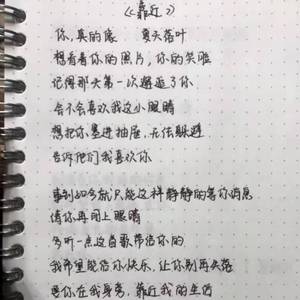 《靠近》
你,真的像 夏天落叶
想看看你的照片,你的笑脸
记得那天第一次邂逅了你
会不会喜欢我这小眼睛
想把你塞进抽屉,无法躲避
告诉他们我喜欢你
事到如今就只能这样静静的等你消息
请你再闭上眼睛
多听一点这首歌带给你的
我希望能给你快乐,让你别再失落
要你在我身旁,靠近我的生活